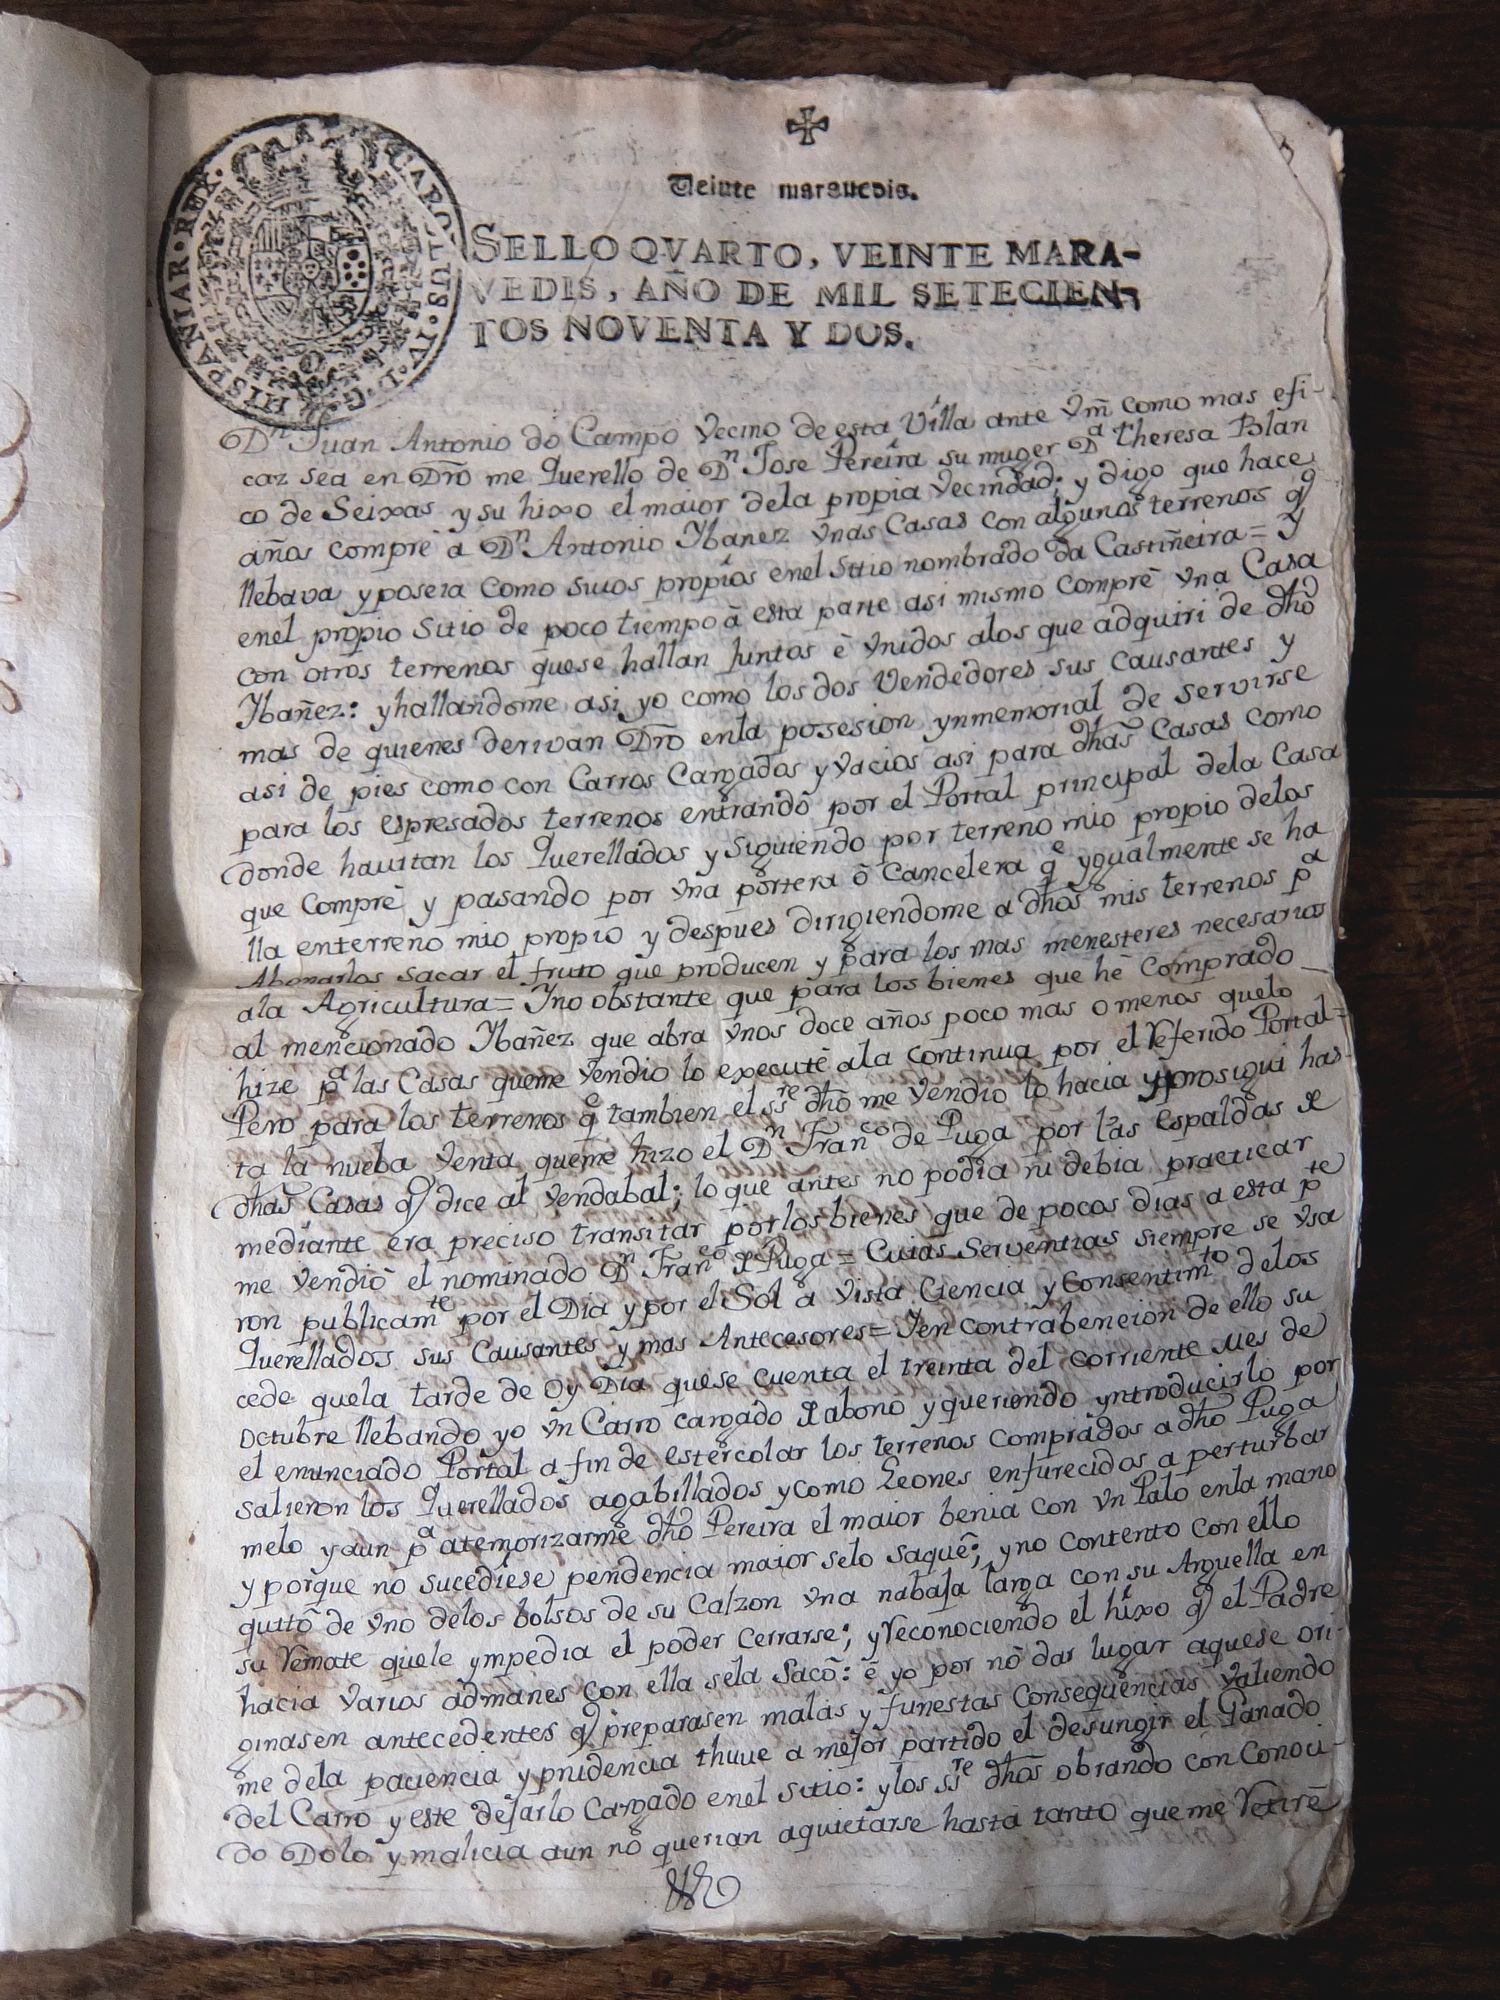 CAROLUS · IV · D · G · HISPANIAR · REX ·
Veinte marauedis.
SELLO QVARTO, VEINTE MARA-
VEDIS, AÑO DE MIL SETECIEN-
TOS NOVENTA Y DOS.
Dn Juan Antonio do Campo vecino de esta Villa ante Vm̃ como mas efi-
caz sea en Dr̃o me Querello de Dn Jose Pereira su muger Da Theresa Blan
co de Seixas y su hixo el maior dela propia vecindad; y digo que hace
años compre à Dn Antonio Ybanez vnas Casas con algunos terrenos q
llebava y poseia como suios propios enel sitio nombrado da Castiñeira = Y
enel propio Sitio de poco tiempo à esta parte asi mismo Compré vna Casa
con otros terrenos quese hallan Juntos è vnidos alos que adquiri de dh̃o
Ybañez: y hallandome asi yo como los dos Vendedores sus causantes y
mas de quienes derivan Dr̃o enla posesion ynmemorial de servirse
asi de pies como con Carros Cargados y vacios asi para dh̃as Casas como
para los espresados terrenos entrando por el Portal principal dela Casa
donde havitan los Querellados y siguiendo por terreno mio propio delos
que Compré y pasando por vna portera ò Cancelera qe ygualmente se ha
lla enterreno mio propio y despues dirigiendome a dh̃os mis terrenos pa
Abonarlos sacar el fruto que producen y para los mas menesteres necesarios
ala Agricultura = Y no obstante que para los bienes que hé Comprado
al mencionado Ybañez que abra vnos doce años poco mas o menos quelo
hize pa las Casas queme Vendio lo executé ala Continua por el referido Portal =
Pero para los terrenos qe tambien el ssre dh̃o me Vendio lo hacia y prosigui has-
ta la nueba Venta queme hizo el Dn Franco de Puga por las espaldas de
dh̃as Casas q dice al Vendabal; lo que antes no podia ni debia practicar
mediante era preciso transitar por los bienes que de pocos dias a esta pte
me vendiò el nominado Dn Franco de Puga = Cuias Serventias siempre se vsa
ron publicamte por el Dia y por el Sol à vista Ciencia y Consentimto delos
Querellados sus Causantes y mas Antecesores = Y en Contrabencion de ello su
cede quela tarde de Oy Dia quese cuenta el treinta del Corriente Mes de
Octubre llebando yo vn Carro cargado de abono y queriendo yntroducirlo por
el enunciado Portal a fin de estercolar los terrenos comprados a dh̃o Puga
salieron los Querellados agabillados y como Leones enfurecidos a perturbar
melo y aun pa atemorizarme dh̃o Pereira el maior benia con vn Palo enla mano
y porque no sucediese pendencia maior selo saqué; y no contento con ello
quitò de vno delos bolsos de su Calzon vna nabaja larga con su Arguella en
su remate quele ympedia el poder Cerrarse; y reconociendo el hixo q el Padre
hacia varios admanes con ella sela Sacò: è yo por nò dar lugar aquese ori-
ginasen antecedentes q preparasen malas y funestas Consequencias valiendo
me dela paciencia y prudencia thuve a mejor partido el desungir el Ganado
del Carro y este dejarlo Cargado enel sitio: y los ssre dh̃os obrando con Conoci-
do Dolo y malicia aun nò querian aquietarse hasta tanto que me retiré